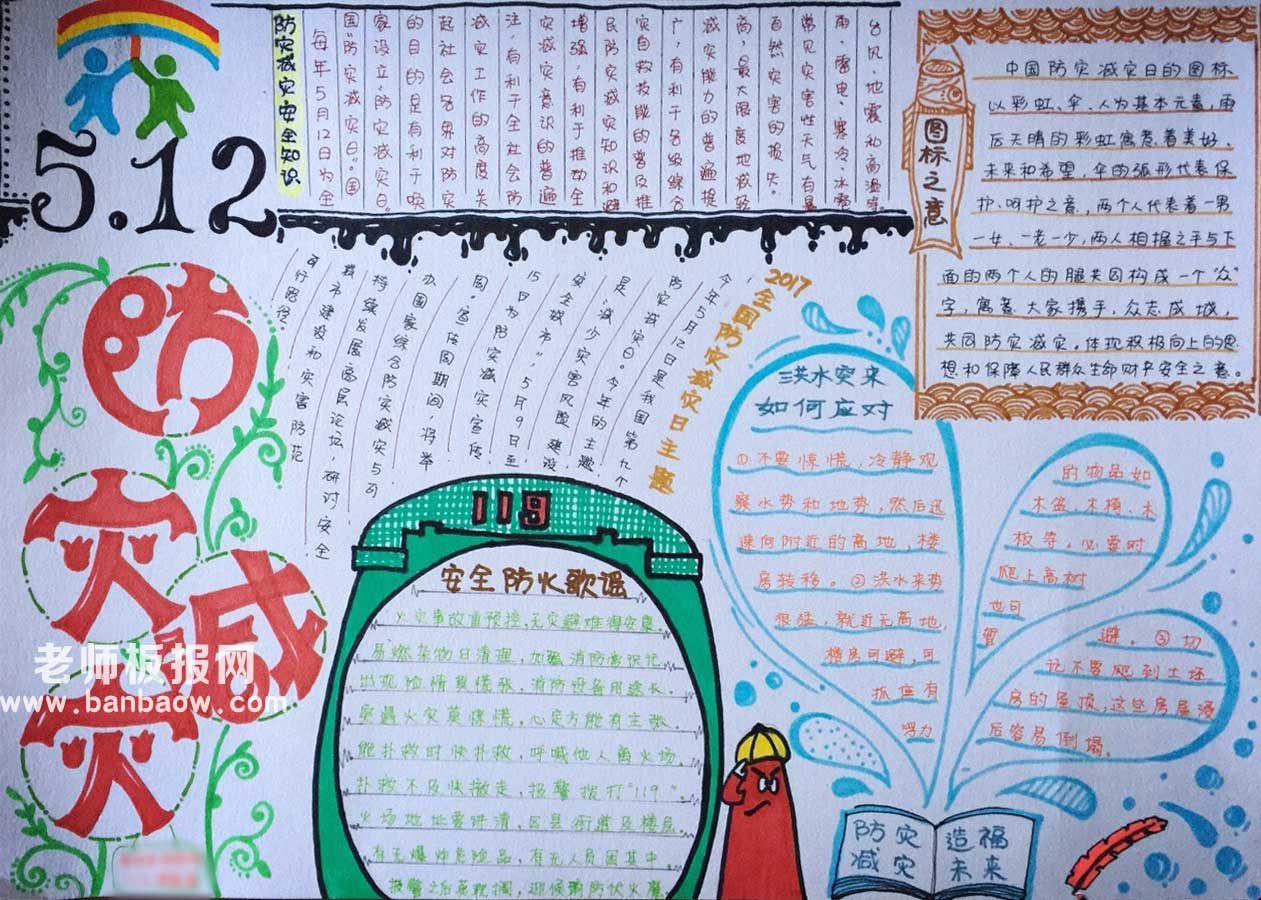 5.12
防灾减灾
防灾减灾安全知识
每年5月12日为全
国“防灾减灾日”。国
家设立“防灾减灾日”
的目的是有利于唤
起社会各界对防灾
减灾工作的高度关
注,有利于全社会防
灾减灾意识的普遍
增强,有利于推动全
民防灾减灾知识和避
灾自救技能的普及推
广,有利于各级综合
减灾能力的普遍提
高,最大限度地减轻
自然灾害的损失。
常见灾害性天气有暴
雨、雷电、寒冷、冰雹
台风、地震和高温等。
图标之意
中国防灾减灾日的图标
以彩虹、伞、人为基本元素,雨
后天晴的彩虹寓意着美好、
未来和希望,伞的弧形代表保
护、呵护之意,两个人代表着一男
一女、一老一少,两人相握之手与下
面的两个人的腿共同构成一个“众”
字,寓意大家携手,众志成城,
共同防灾减灾。体现积极向上的思
想和保障人民群众生命财产安全之意。
2017全国防灾减灾日主题
今年5月12日是我国第九个
防灾减灾日。今年的主题
是“减少灾害风险 建设
安全城市”。5月9日至
15日为防灾减灾宣传
周,宣传周期间,将举
办国家综合防灾减灾与可
持续发展高层论坛,研讨安全
城市建设和灾害防范
可行路径。
119
安全防火歌谣
火灾事故重预控,无灾避难得安康。
易燃杂物日清理,加强消防常识记。
出现险情莫慌张,消防设备用途长。
突遇火灾莫惊慌,心定方能有主张。
能扑救时快扑救,呼喊他人离火场。
扑救不及快撤走,报警拨打“119”。
火场地址要讲清,区县街道及楼层
有无爆炸危险品,有无人员困其中。
报警之后莫耽搁,迎候消防伏火魔。
洪水突来
如何应对
①不要惊慌,冷静观
察水势和地势,然后迅
速向附近的高地,楼
房转移。②洪水来势
很猛,就近无高地,
楼房可避,可
抓住有
浮力
的物品如
木盆、木桶、木
板等。必要时
爬上高树
也可
暂
避。③切
记不要爬到土坯
房的屋顶,这些房屋浸
后容易倒塌。
防灾
减灾
造福
未来
老师板报网
www.banbaow.com